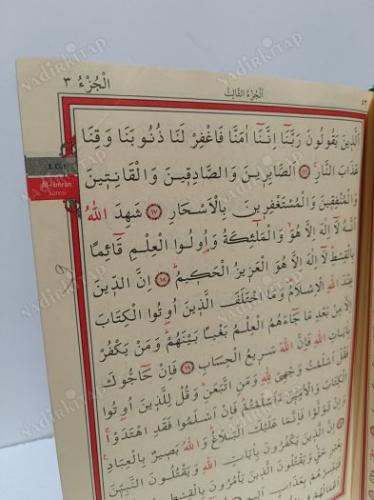 الْجُزْءُ ٣
اَلْجُزْءُ الثَّالِثُ
٤٣
اَلَّذِينَ يَقُولُونَ رَبَّنَٓا اِنَّنَٓا اٰمَنَّا فَاغْفِرْ لَنَا ذُنُوبَنَا وَقِنَا
عَذَابَ النَّارِۚ ﴿١٦﴾ اَلصَّابِرِينَ وَالصَّادِقِينَ وَالْقَانِتِينَ
وَالْمُنْفِقِينَ وَالْمُسْتَغْفِرِينَ بِالْاَسْحَارِ ﴿١٧﴾ شَهِدَ اللّٰهُ
اَنَّهُ لَٓا اِلٰهَ اِلَّا هُوَۙ وَالْمَلٰٓئِكَةُ وَاُو۬لُوا الْعِلْمِ قَٓائِمًا
بِالْقِسْطِۜ لَٓا اِلٰهَ اِلَّا هُوَ الْعَزِيزُ الْحَكِيمُۜ ﴿١٨﴾ اِنَّ الدِّينَ
عِنْدَ اللّٰهِ الْاِسْلَامُ۠ وَمَا اخْتَلَفَ الَّذِينَ اُو۫تُوا الْكِتَابَ
اِلَّا مِنْ بَعْدِ مَا جَٓاءَهُمُ الْعِلْمُ بَغْيًا بَيْنَهُمْۜ وَمَنْ يَكْفُرْ
بِاٰيَاتِ اللّٰهِ فَاِنَّ اللّٰهَ سَرِيعُ الْحِسَابِ ﴿١٩﴾ فَاِنْ حَٓاجُّوكَ
فَقُلْ اَسْلَمْتُ وَجْهِيَ لِلّٰهِ وَمَنِ اتَّبَعَنِۜ وَقُلْ لِلَّذِينَ اُو۫تُوا
الْكِتَابَ وَالْاُمِّيّ۪نَ ءَاَسْلَمْتُمْۜ فَاِنْ اَسْلَمُوا فَقَدِ اهْتَدَوْاۚ
وَاِنْ تَوَلَّوْا فَاِنَّمَا عَلَيْكَ الْبَلَاغُۜ وَاللّٰهُ بَصِيرٌ بِالْعِبَادِ۟
اِنَّ الَّذِينَ يَكْفُرُونَ بِاٰيَاتِ اللّٰهِ وَيَقْتُلُونَ النَّبِيّ۪نَ
بِغَيْرِ حَقٍّۙ وَيَقْتُلُونَ الَّذِينَ يَأْمُرُونَ بِالْقِسْطِ
Al-i İmran
sûresi
NADİRKİTAP